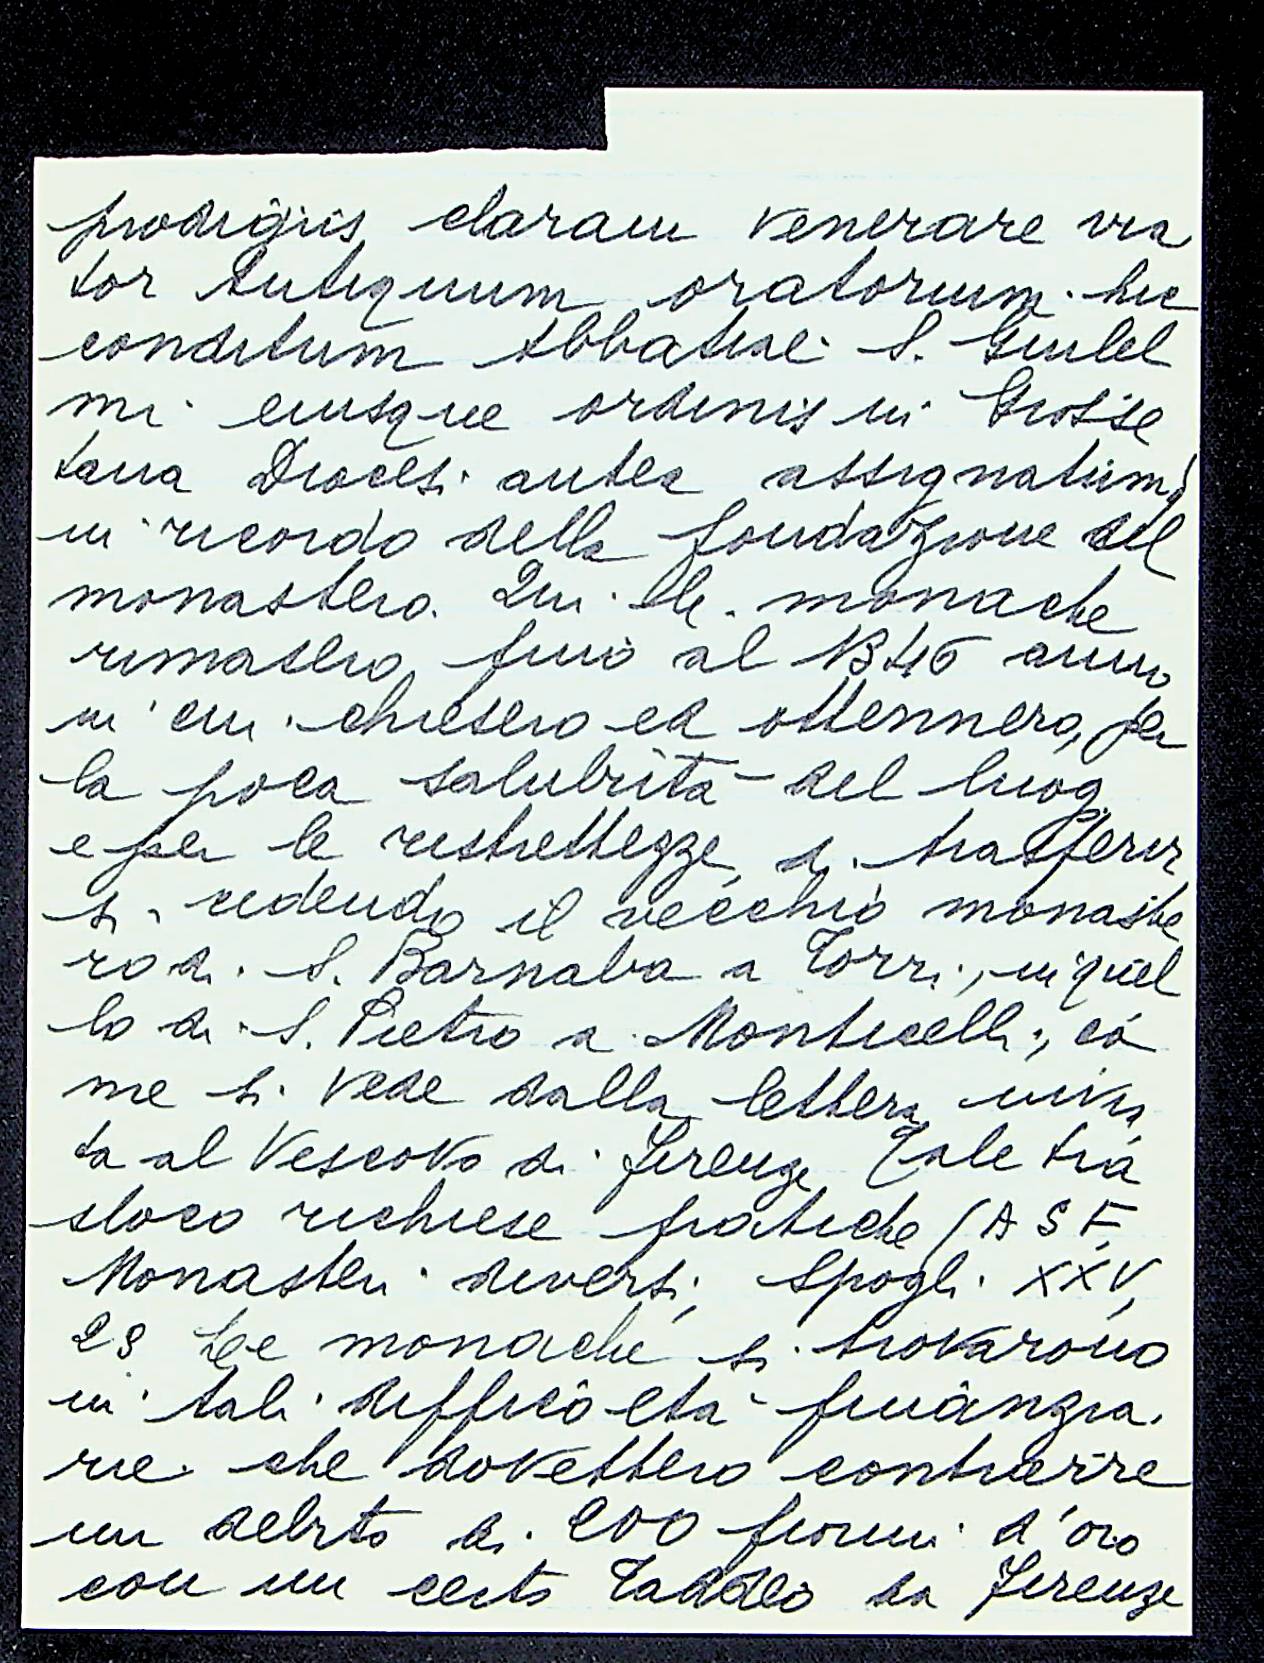 prodigiis claram venerare via
tor Antiquum oratorium hic
conditum Abbatiae S. Gulel
mi eiusque ordinis in Grosse
tana Diocesi antea assignatum)
in ricordo della fondazione del
monastero. Qui le monache
rimasero fino al 1346 anno
in cui chiesero ed ottennero, per
la poca salubrità del luog
e per le ristrettezze, di trasferir
si cedendo il vecchio monaste
ro di S. Barnaba a Torri, in quel
lo di S. Pietro a Monticelli, co
me si vede dalla lettera invia
ta al Vescovo di Firenze Tale tra
sloco richiese pratiche (A S F,
Monasteri diversi, Spogli XXV,
23 Le monache si trovarono
in tali difficoltà finanzia
rie che dovettero contrarre
un debito di 200 fiorini d'oro
con un certo Taddeo da Firenze